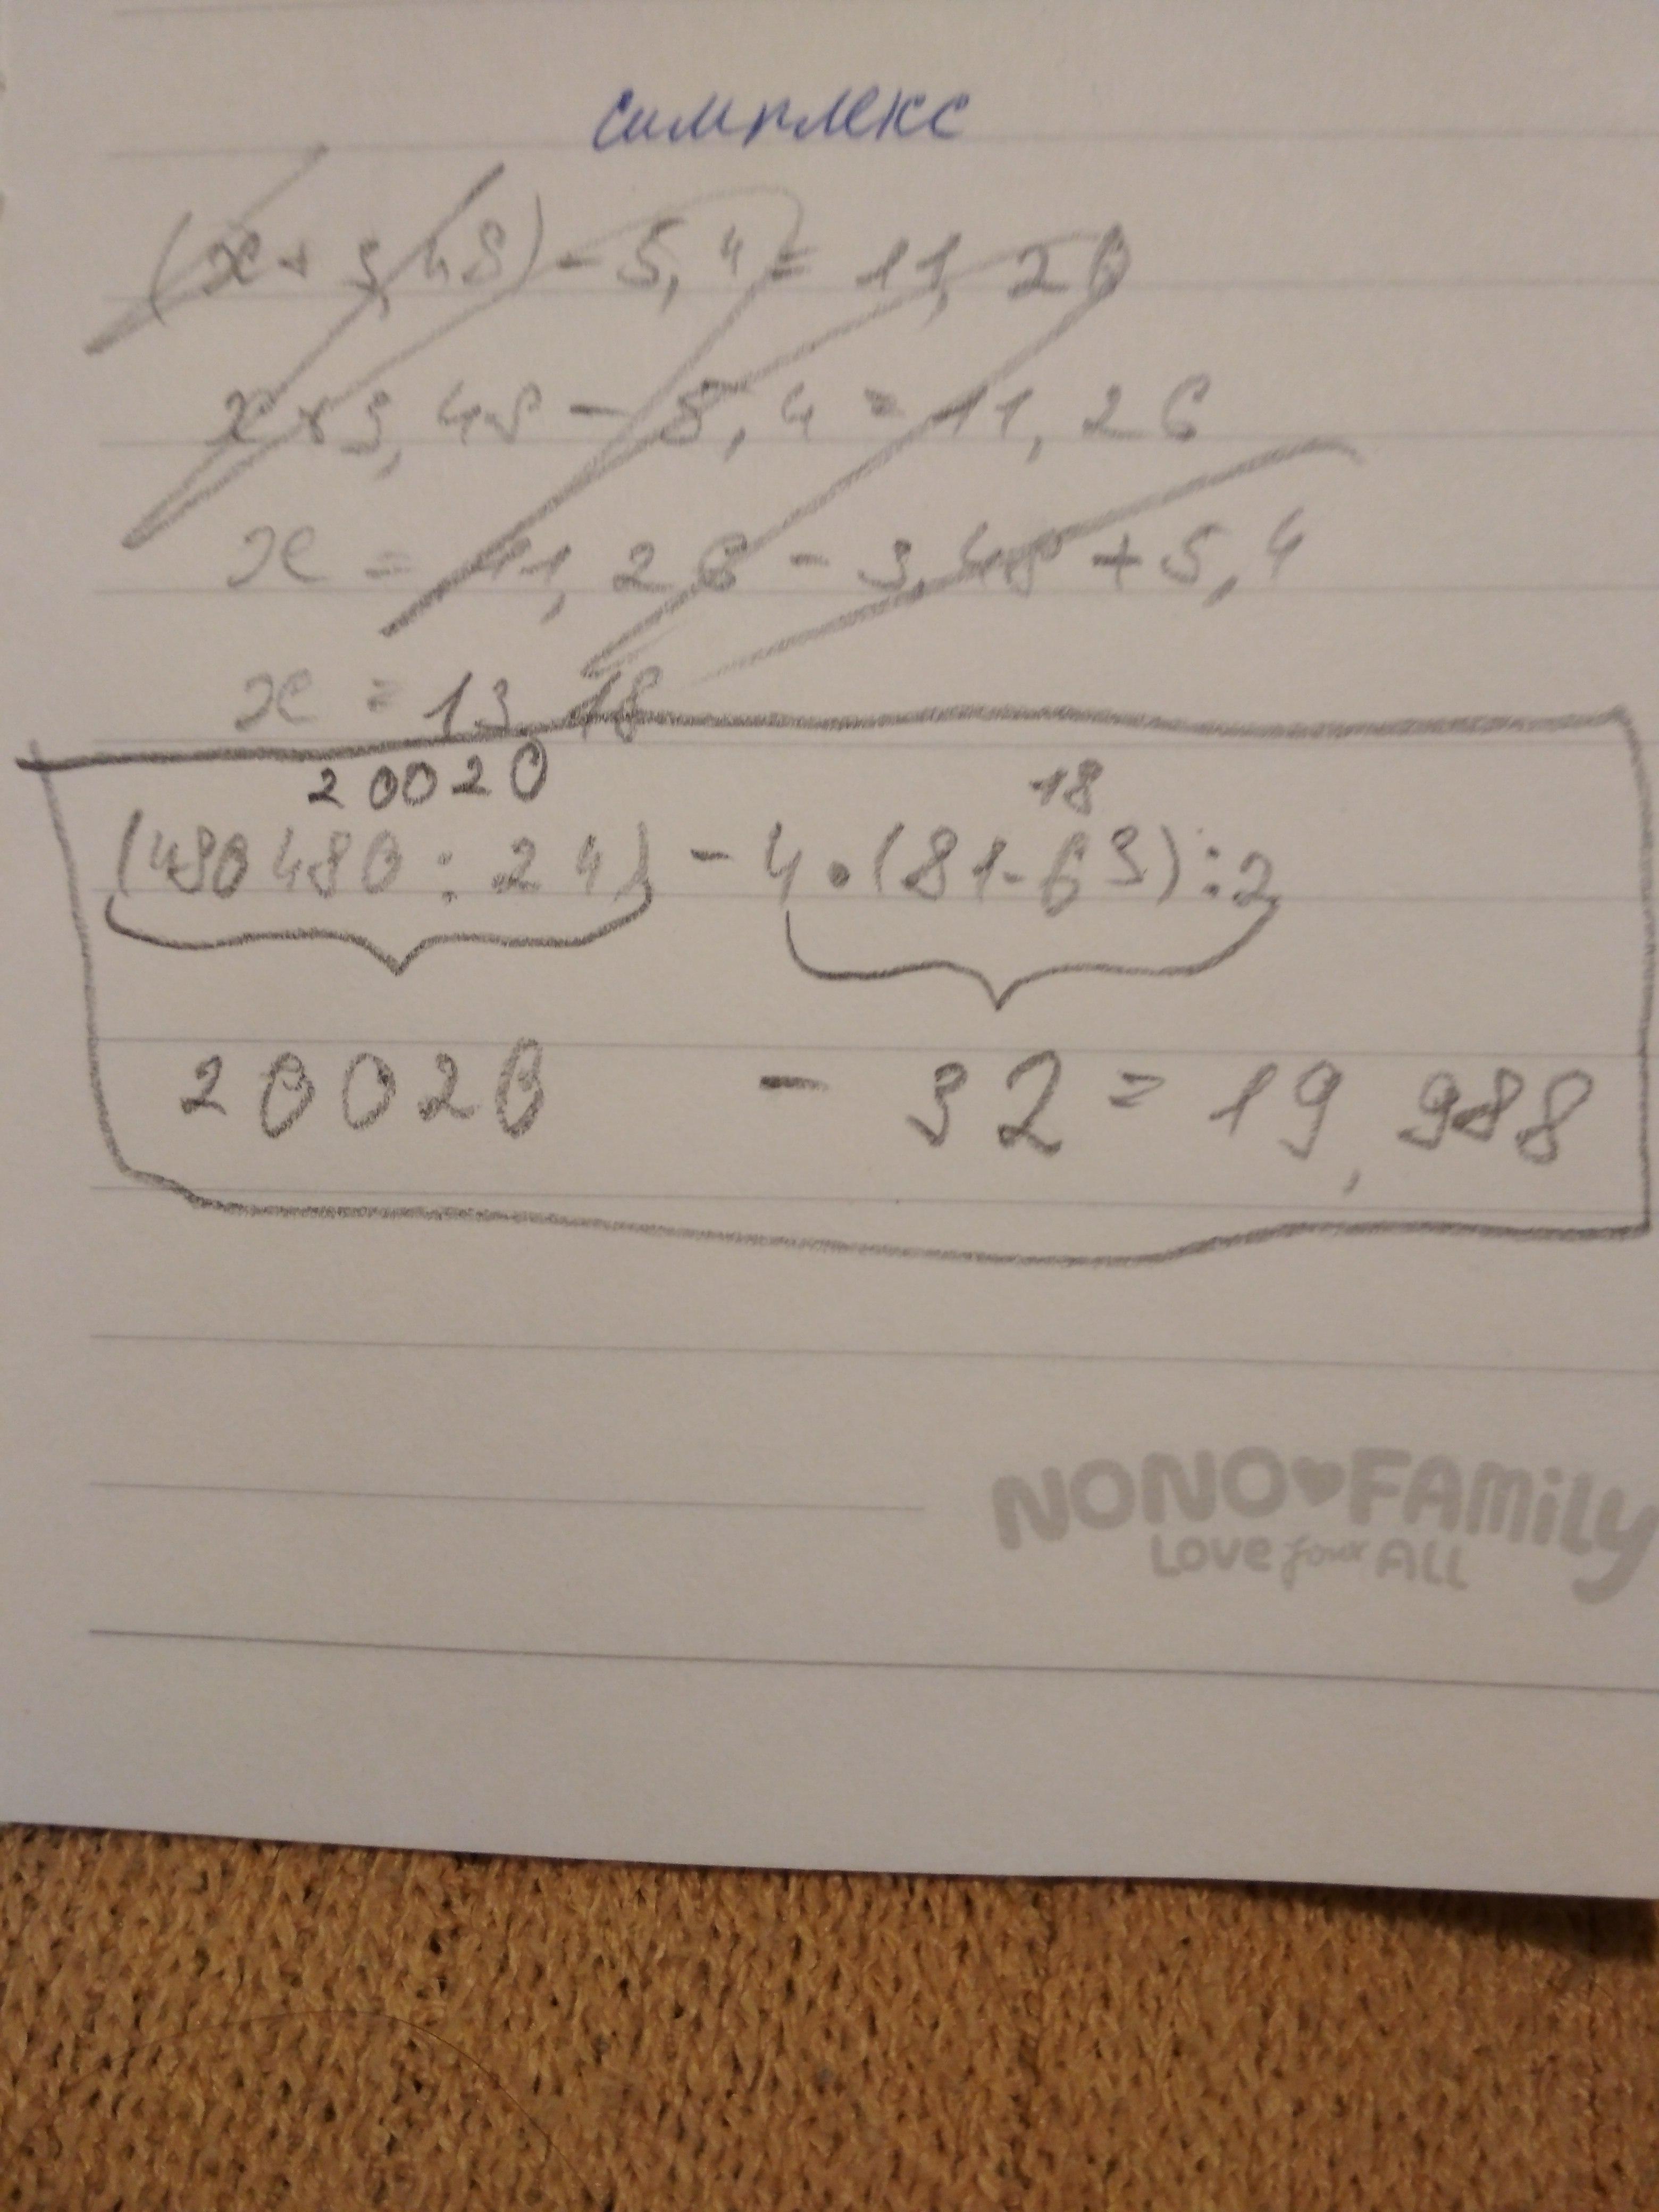 симплекс
(x + 3,48) - 5,4 = 11,26
x + 3,48 - 5,4 = 11,26
x = 11,26 - 3,48 + 5,4
x = 13,18
20020 18
(480480 : 24) - 4 · (81 - 63) : 2
20020 - 32 = 19,988
NONO♥FAMiLy
LOVE four ALL